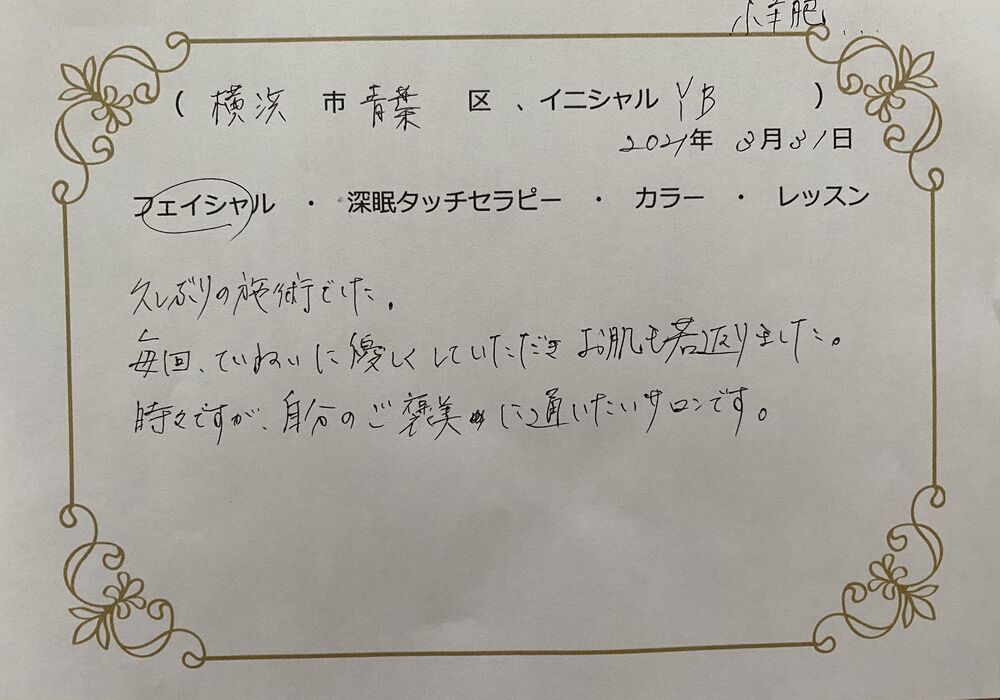 （ 横浜 市 青葉 区 、イニシャル YB ）
2021年 3月31日
フェイシャル ・ 深眠タッチセラピー ・ カラー ・ レッスン
久しぶりの施術でした。
毎回、ていねいに優しくしていただきお肌も若返りました。
時々ですが、自分のご褒美に通いたいサロンです。